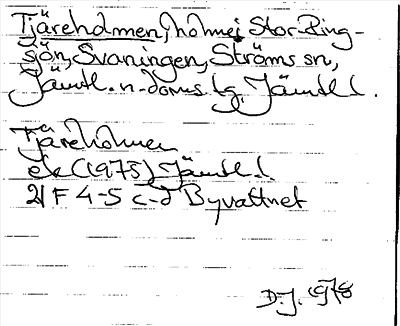 Tjäreholmen, holme i Stor-Ring-
sjön, Svaningen, Ströms sn,
Jämtl. n. doms. tg, Jämtl. l.
Tjäreholmen
ek (1975) Jämtl. l
21 F 4-5 c-d Byvattnet
D.J. 1978